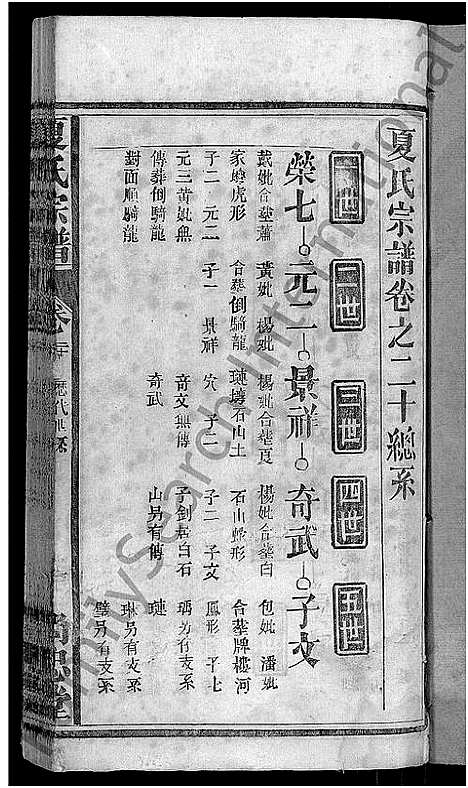 夏氏宗譜卷之二十總系
一世 二世 三世 四世 五世
榮七 元二 景祥 奇武 子文
戴妣合塟蕭 黃妣 楊妣 楊妣合塟夏 楊妣合塟白 包妣 潘妣
家嘴虎形 合塟倒騎龍 璉塘石山土 石山蛇形 合塟牌樓河
子二 元二 子一 景祥 穴 子二 子二 子文 鳳形 子七
元三黃妣無 奇文無傳 子劍居白石 瑀另有支系
傳葬倒騎龍 奇武 山另有傳 璉
對面順騎龍 琳另有支系
璧另有支系
夏氏宗譜 卷二十 歷代總系
FamilySearch International